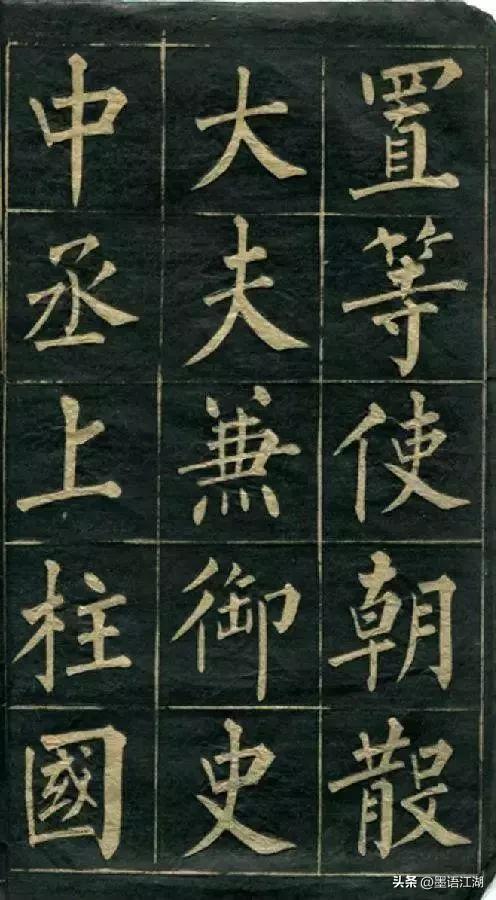 置等使朝散
大夫兼御史
中丞上柱國
头条 @墨语江湖